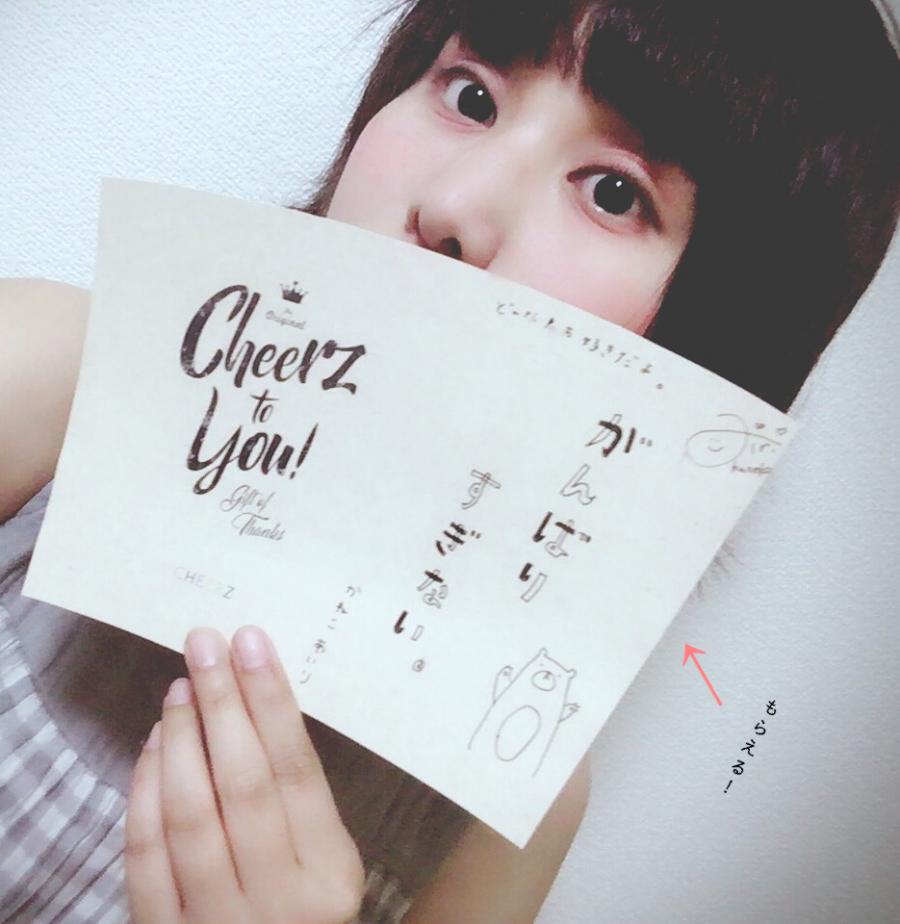 An
Original
Cheerz
to
You!
Gift of
Thanks
CHEERZ
どんな君も好きだよ。
がんばり
すぎない。
かねこあいり
もらえる！